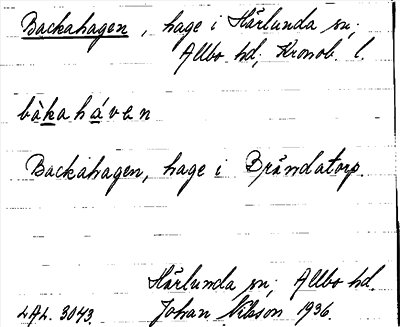 Backahagen, hage i Härlunda sn;
Allbo hd, Kronob. l.
bàkaháven
Backahagen, hage i Brändatorp.
Härlunda sn; Allbo hd.
LAL. 3043. Johan Nilsson 1936.